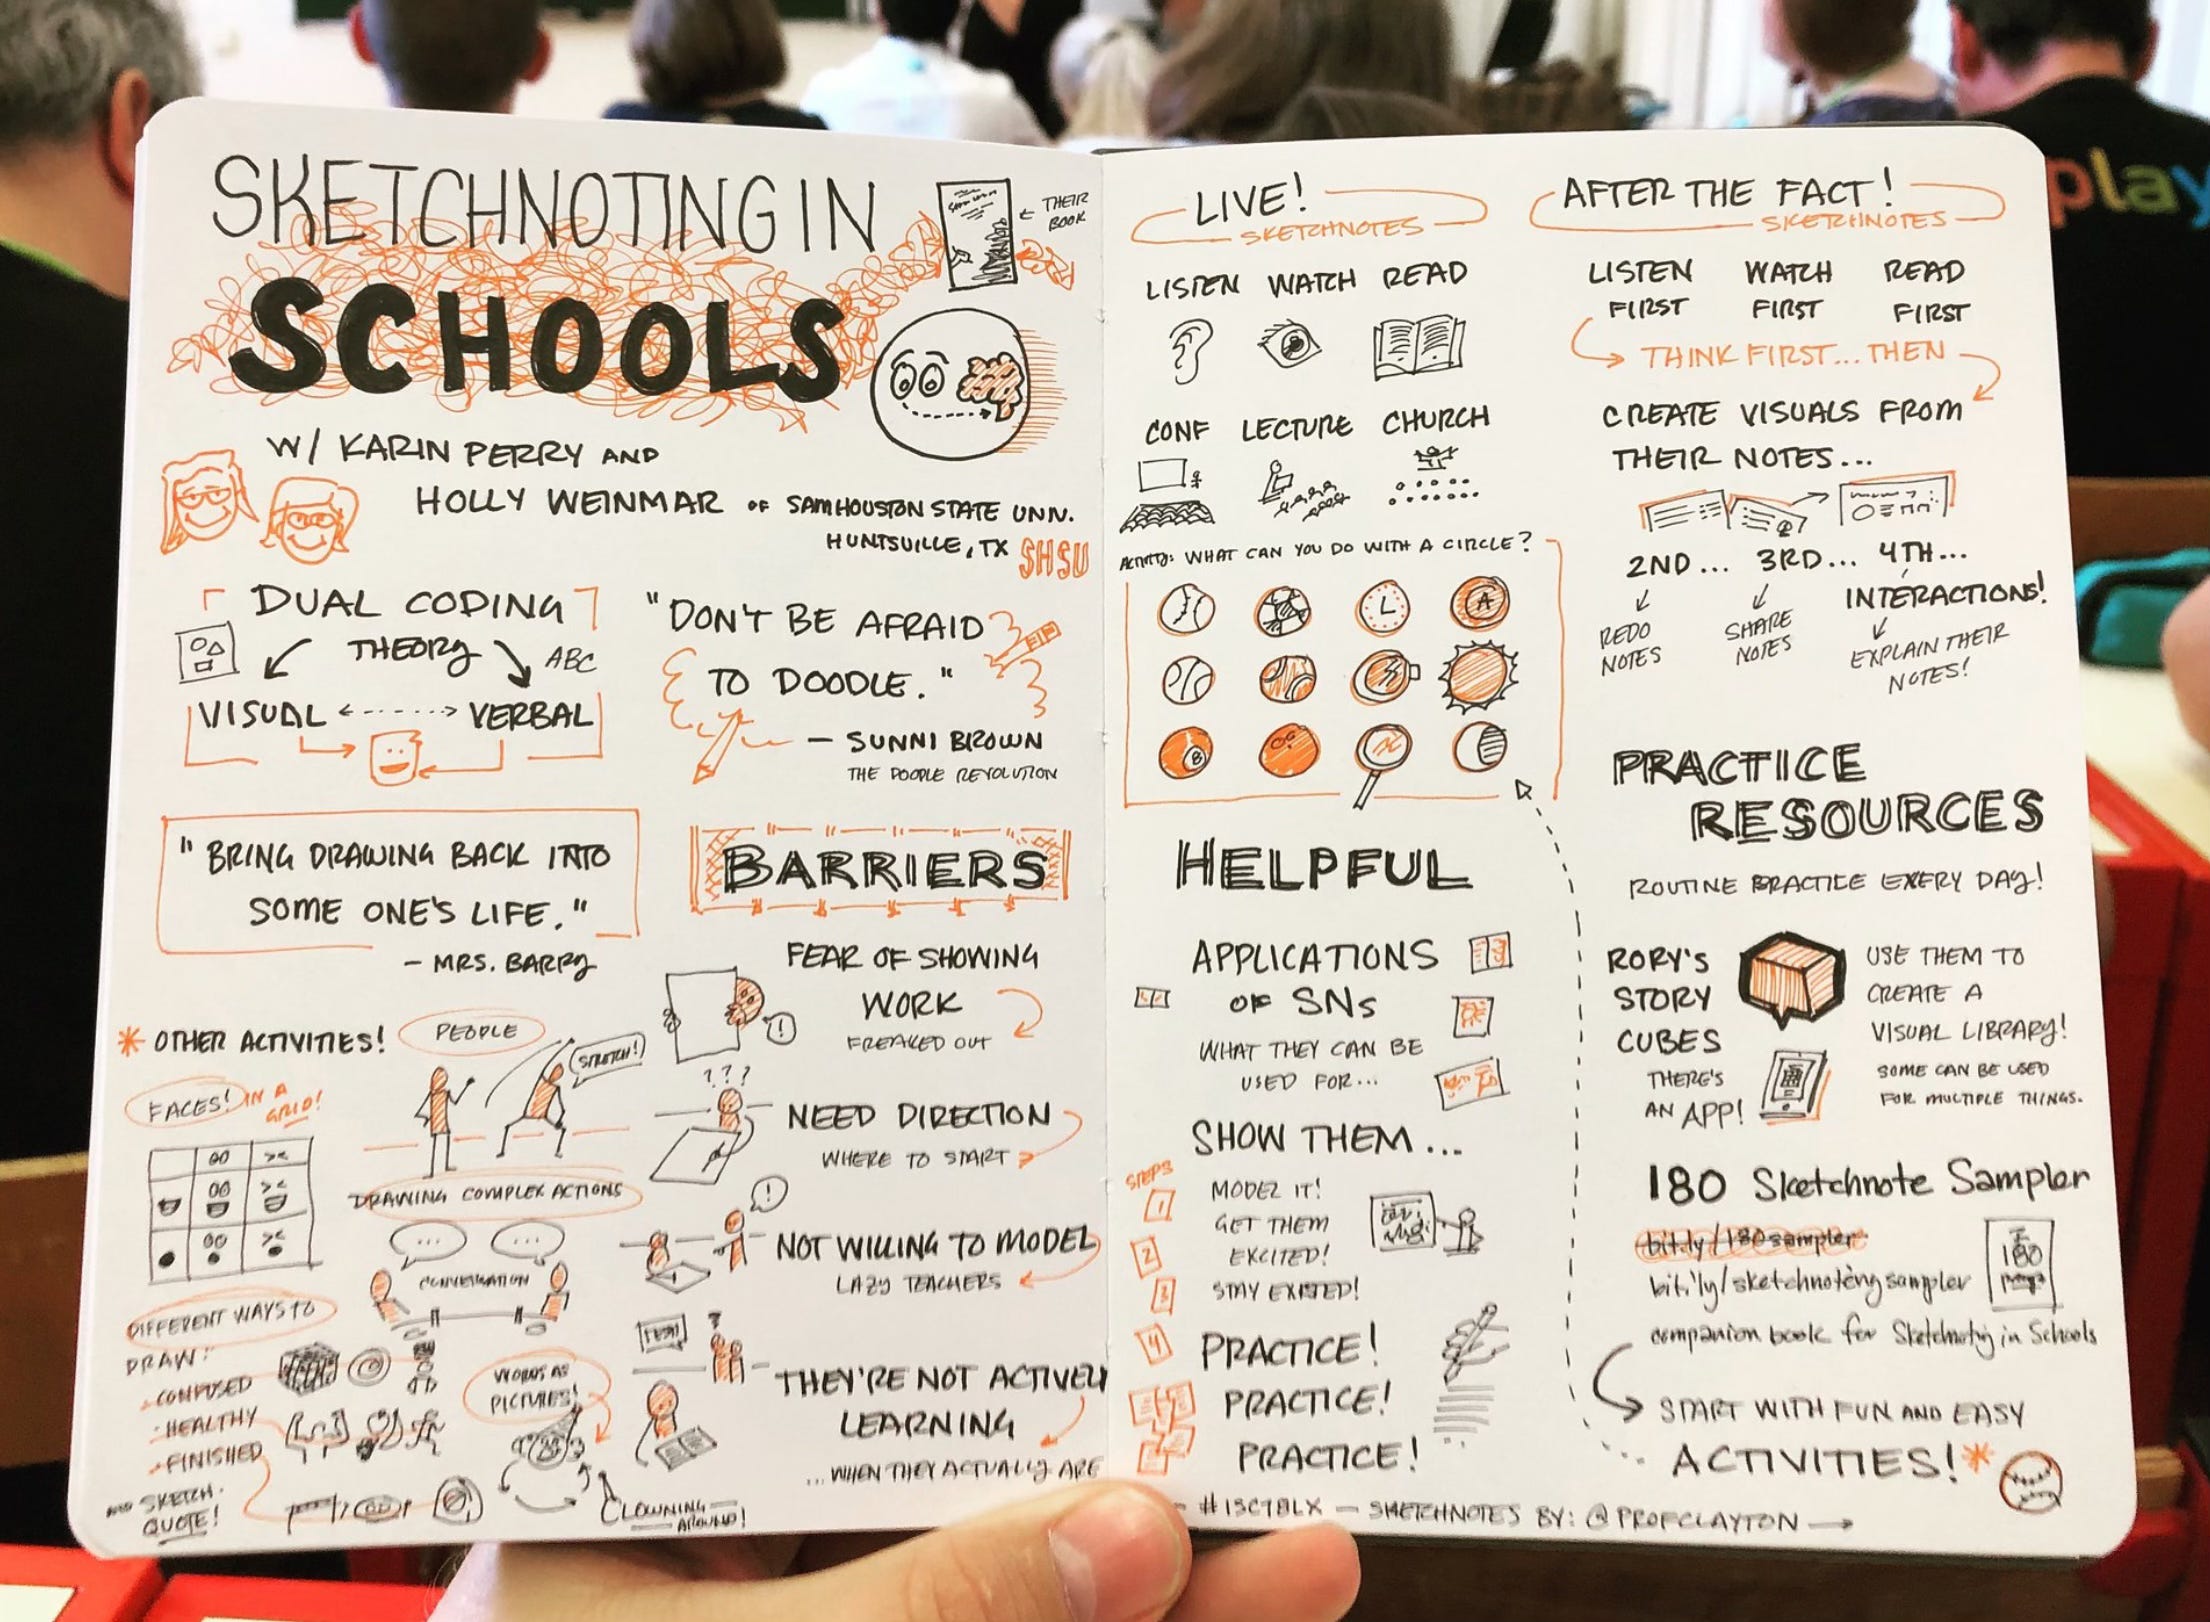 SKETCHNOTING IN
SCHOOLS
← THEIR
BOOK
W/ KARIN PERRY AND
HOLLY WEINMAR OF SAM HOUSTON STATE UNIV.
HUNTSVILLE, TX SHSU
DUAL CODING
THEORY
ABC
VISUAL <-----> VERBAL
"DON'T BE AFRAID
TO DOODLE."
— SUNNI BROWN
THE DOODLE REVOLUTION
"BRING DRAWING BACK INTO
SOME ONE'S LIFE."
- MRS. BARRY
BARRIERS
FEAR OF SHOWING
WORK
FREAKED OUT
!
???
NEED DIRECTION
WHERE TO START
!
NOT WILLING TO MODEL
LAZY TEACHERS
?
THEY'RE NOT ACTIVELY
LEARNING
...WHEN THEY ACTUALLY ARE
* OTHER ACTIVITIES!
PEOPLE
STRETCH!
FACES! IN A
GRID!
DRAWING COMPLEX ACTIONS
... ...
CONVERSATION
DIFFERENT WAYS TO
DRAW:
- CONFUSED
- HEALTHY
- FINISHED
WORDS AS
PICTURES!
SKETCH-
QUOTE!
CLOWNING
AROUND!
LIVE!
SKETCHNOTES
LISTEN WATCH READ
CONF LECTURE CHURCH
ACTIVITY: WHAT CAN YOU DO WITH A CIRCLE?
L
A
8
HELPFUL
APPLICATIONS
OF SNs
WHAT THEY CAN BE
USED FOR...
SHOW THEM...
STEPS
1 MODEL IT!
2 GET THEM
EXCITED!
3 STAY EXISTED!
4 PRACTICE!
PRACTICE!
PRACTICE!
AFTER THE FACT!
SKETCHNOTES
LISTEN WATCH READ
FIRST FIRST FIRST
THINK FIRST... THEN
CREATE VISUALS FROM
THEIR NOTES...
2ND... 3RD... 4TH...
REDO
NOTES
SHARE
NOTES
INTERACTIONS!
EXPLAIN THEIR
NOTES!
PRACTICE
RESOURCES
ROUTINE PRACTICE EVERY DAY!
RORY'S
STORY
CUBES
THERE'S
AN APP!
USE THEM TO
CREATE A
VISUAL LIBRARY!
SOME CAN BE USED
FOR MULTIPLE THINGS.
180 Sketchnote Sampler
bit.ly/180sampler
180
bit.ly/sketchnotingsampler
companion book for Sketchnoting in Schools
START WITH FUN AND EASY
ACTIVITIES! *
- #ISC18LX — SKETCHNOTES BY: @PROFCLAYTON →
play